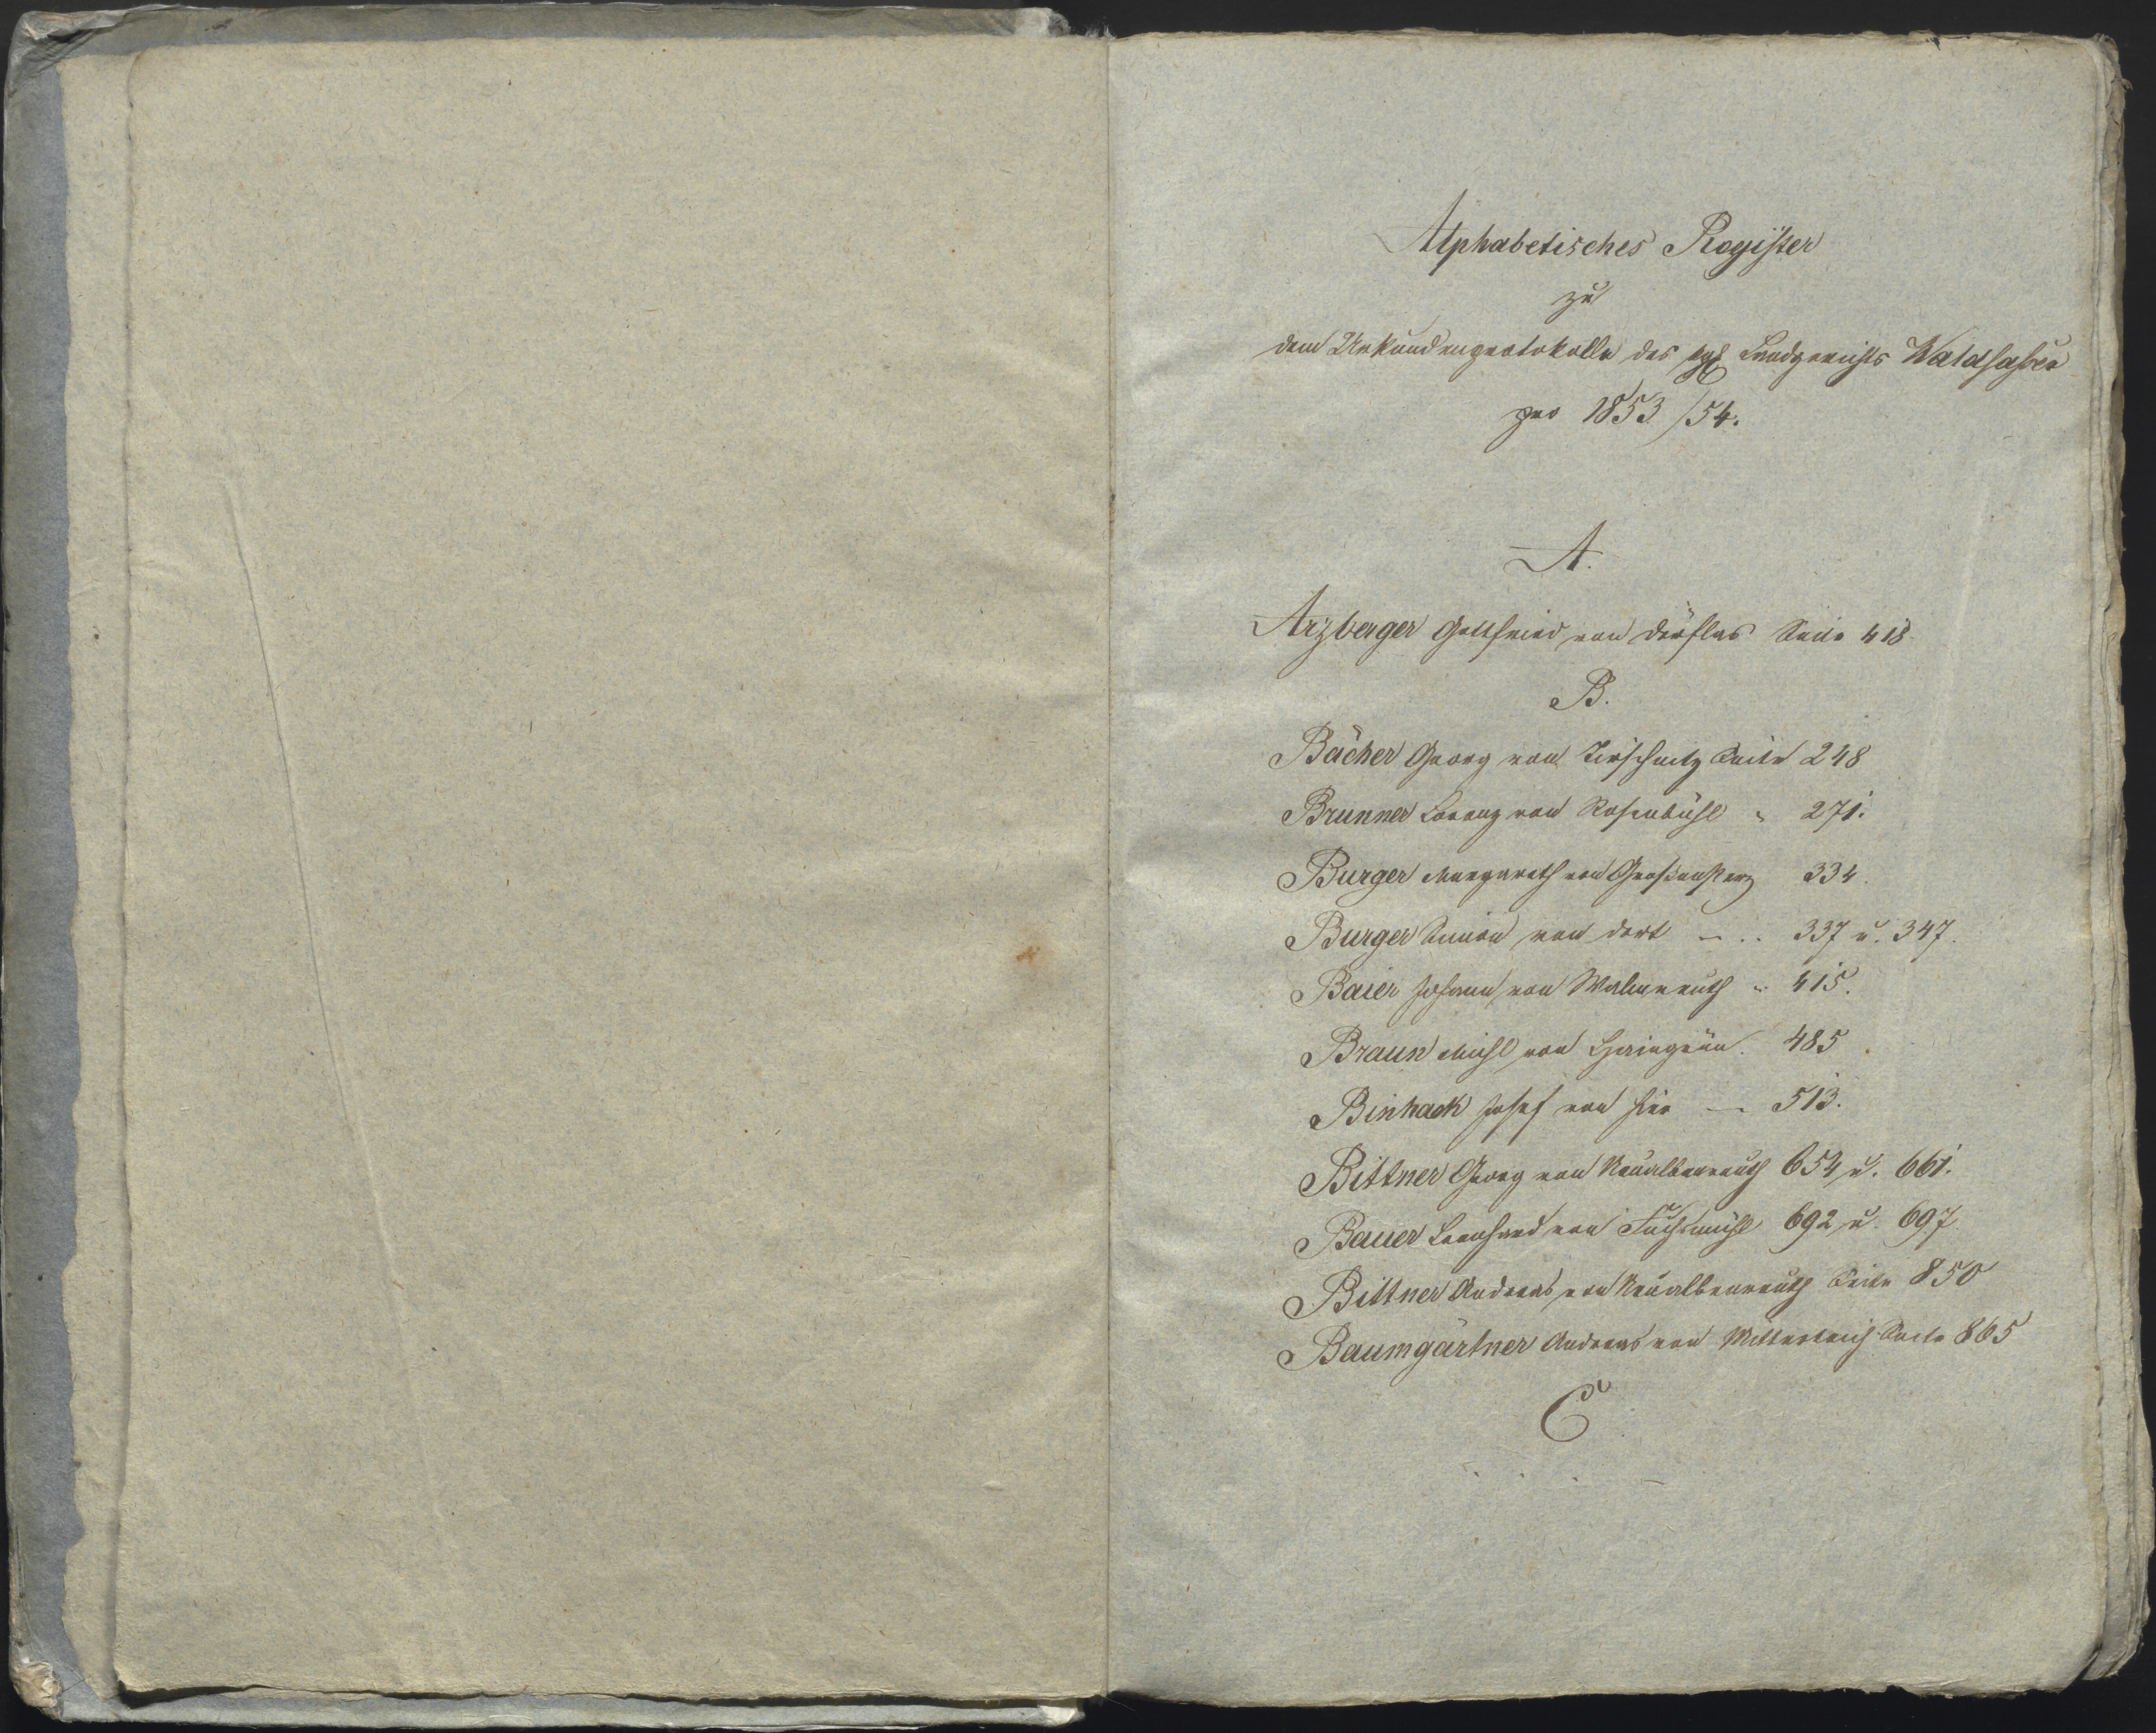 Alphabetisches Register
zu
dem Urkundenprotokolle des kgl Landgerichts Waldsassen
pro 1853/54.
A.
Arzberger Gottfried von Dörflas Seite 418
B.
Bächer Georg von Tirschnitz Seite 248
Brunner Lorenz von Rosenbühl " 271.
Burger Margareth von Großensterz 334.
Burger Simon von dort — .. 337 u. 347.
Baier Johann von Walmreuth " 415.
Braun Michl von Hairngrün. 485
Binhack Josef von hier — 513.
Bittner Georg von Neualbenreuth 654 u. 661.
Bauer Leonhard von Fuchsmühl 692 u. 697.
Bittner Andreas von Neualbenreuth Seite 850
Baumgärtner Andreas von Mitterteich Seite 865
C